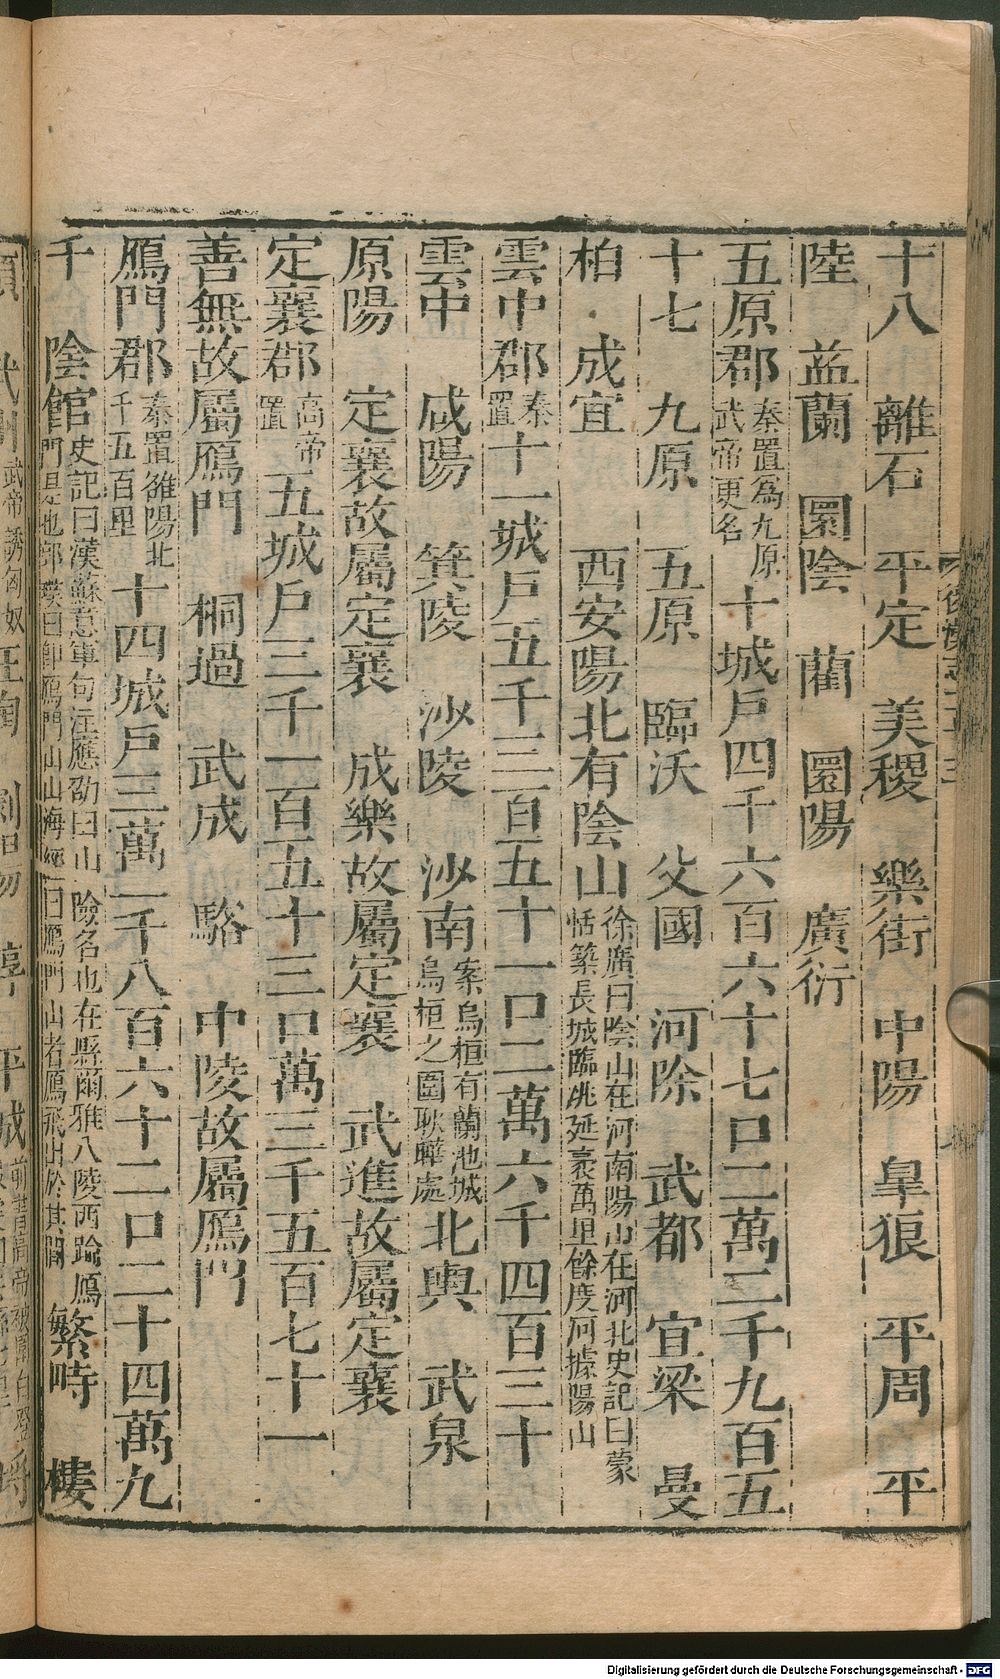 十八 離石 平定 美稷 樂街 中陽 皐狼 平周 平
陸 益蘭 圜陰 藺 圜陽 廣衍
五原郡秦置爲九原武帝更名十城戶四千六百六十七口二萬二千九百五
十七 九原 五原 臨沃 父國 河除 武都 宜梁 曼
柏 成宜 西安陽北有陰山徐廣曰陰山在河南陽山在河北史記曰蒙恬築長城臨洮延袤萬里餘度河據陽山
雲中郡秦置十一城戶五千三百五十一口二萬六千四百三十
雲中 咸陽 箕陵 沙陵 沙南案烏桓有蘭池城烏桓之圍耿曄處北輿 武泉
原陽 定襄故屬定襄 成樂故屬定襄 武進故屬定襄
定襄郡高帝置五城戶三千一百五十三口萬三千五百七十一
善無故屬鴈門 桐過 武成 駱 中陵故屬鴈門
鴈門郡秦置雒陽北千五百里十四城戶三萬一千八百六十二口二十四萬九
千 陰館史記曰漢蘇意軍句注應劭曰山險名也在縣爾雅八陵西隃鴈門是也郭璞曰卽鴈門山山海經曰鴈門山者鴈飛出於其閒 繁畤 樓
Digitalisierung gefördert durch die Deutsche Forschungsgemeinschaft - DFG